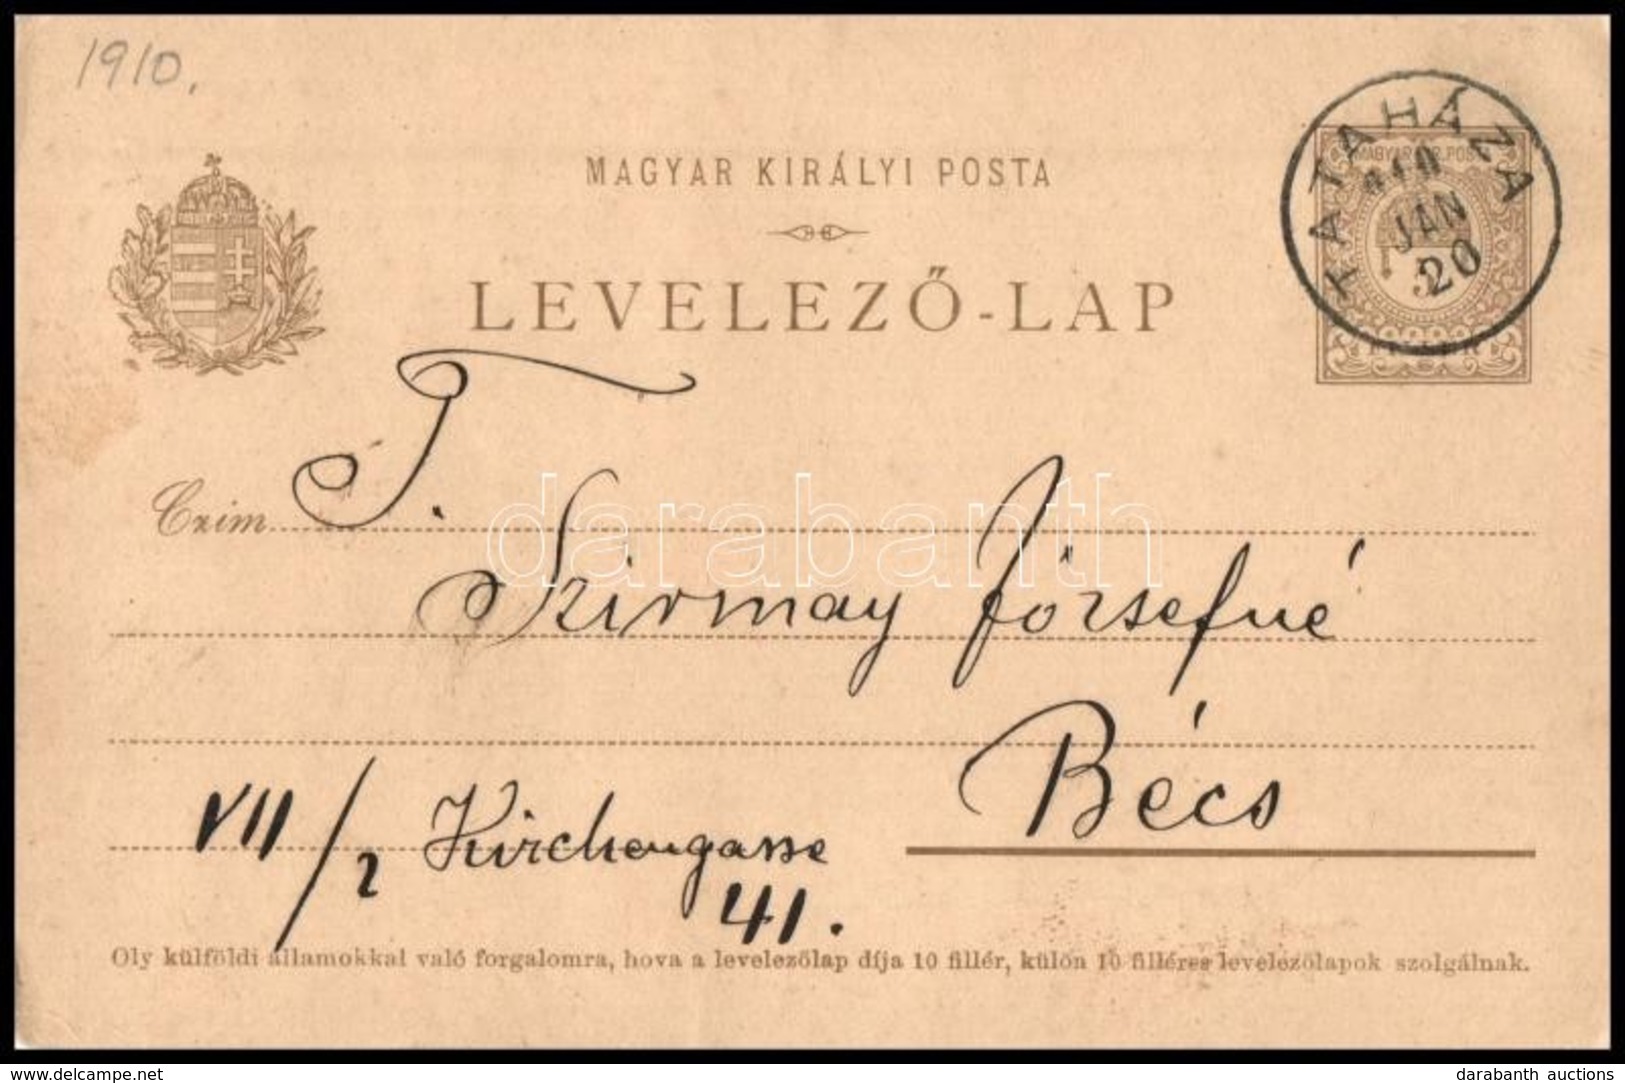 1910.
MAGYAR KIRÁLYI POSTA
LEVELEZŐ-LAP
TATAHÁZA
910
JAN
20
MAGYAR KIR. POSTA
5
FILLÉR
Czim
T.
Szirmay Józsefné
Bécs
VII/2 Kirchengasse
41.
Oly külföldi államokkal való forgalomra, hova a levelezőlap díja 10 fillér, külön 10 filléres levelezőlapok szolgálnak.
darabanth
www.delcampe.net
darabanth auctions